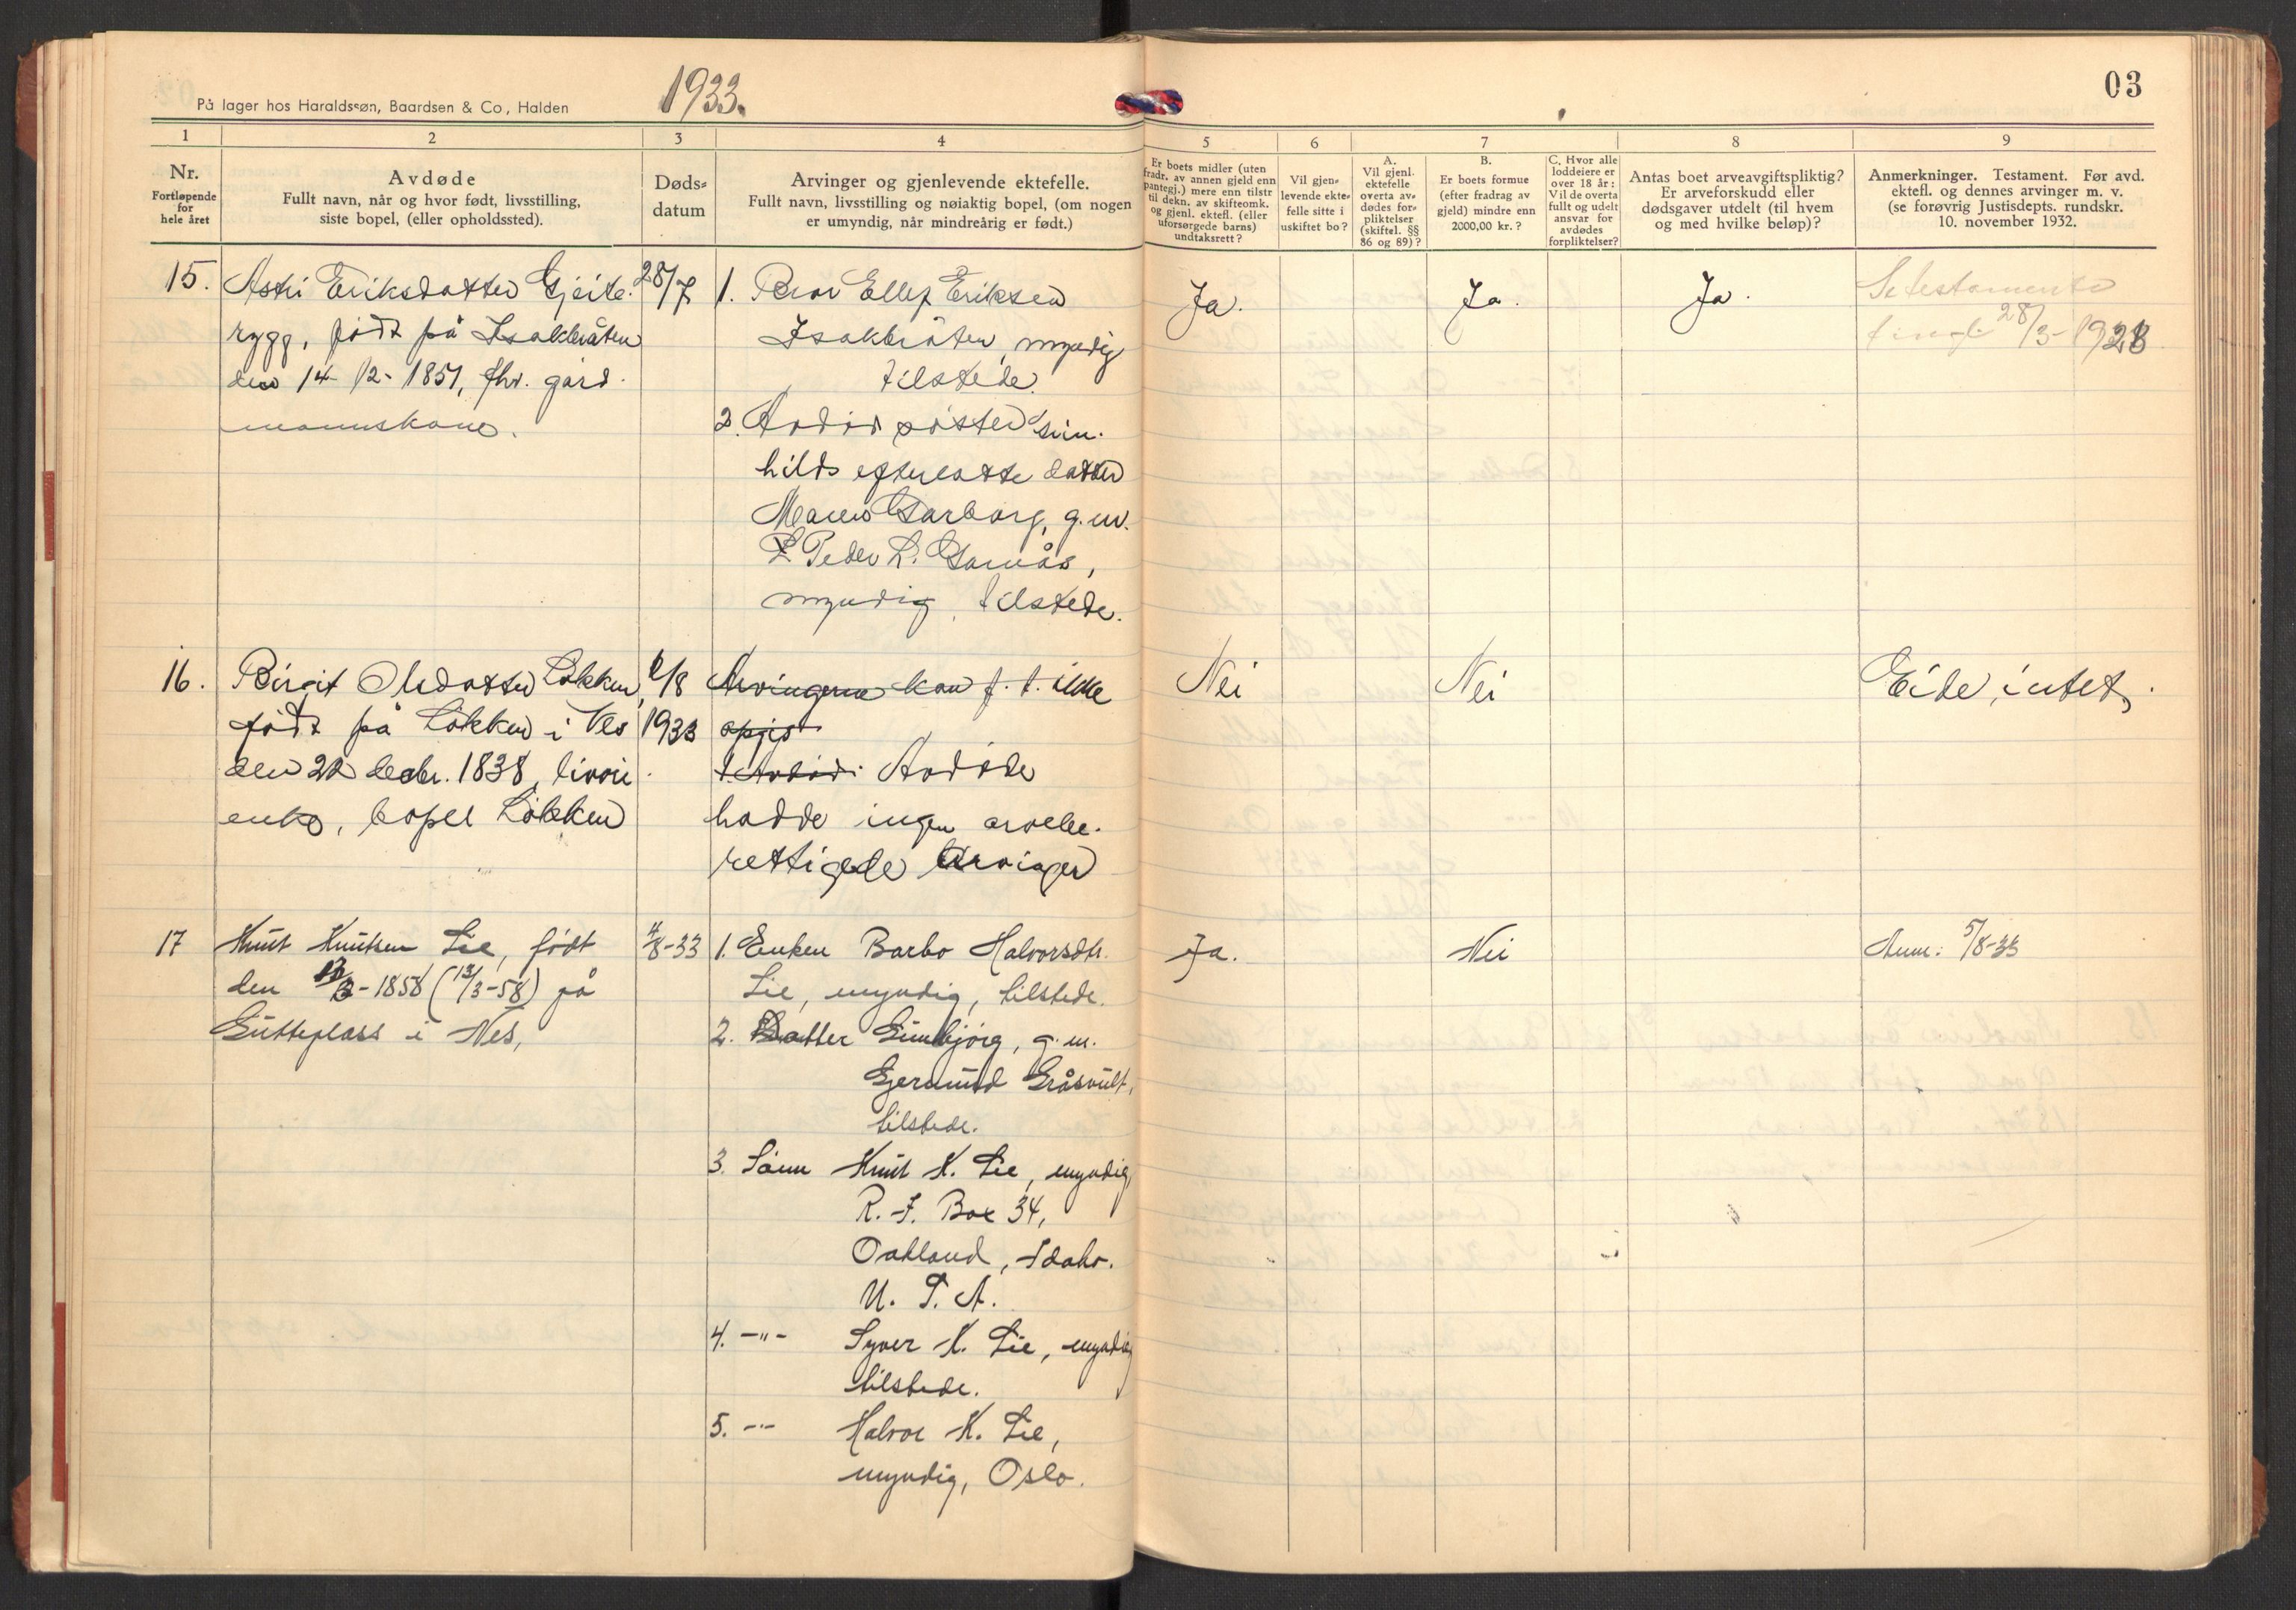 På lager hos Haraldssøn, Baardsen & Co, Halden
1933.
03
1
2
3
4
5
6
7
8
9
Nr.
Fortløpende
for
hele året
Avdøde
Fullt navn, når og hvor født, livsstilling,
siste bopel, (eller opholdssted).
Døds-
datum
Arvinger og gjenlevende ektefelle.
Fullt navn, livsstilling og nøiaktig bopel, (om nogen
er umyndig, når mindreårig er født.)
Er boets midler (uten
fradr. av annen gjeld enn
pantegj.) mere enn tilstr
til dekn. av skifteomk.
og gjenl. ektefl. (eller
uforsørgede barns)
undtaksrett?
Vil gjen-
levende ekte-
felle sitte i
uskiftet bo?
A.
Vil gjenl.
ektefelle
overta av-
dødes for-
pliktelser
(skiftel. §§
86 og 89)?
B.
Er boets formue
(efter fradrag av
gjeld) mindre enn
2000,00 kr.?
C. Hvor alle
loddeiere er
over 18 år:
Vil de overta
fullt og udelt
ansvar for
avdødes
forpliktelser?
Antas boet arveavgiftspliktig?
Er arveforskudd eller
dødsgaver utdelt (til hvem
og med hvilke beløp)?
Anmerkninger. Testament. Før avd.
ektefl. og dennes arvinger m. v.
(se forøvrig Justisdepts. rundskr.
10. november 1932.
15.
Astri Eriksdatter Gjeite-
rygg, født på Isakbråten
den 14-12-1851, fhv. gård-
mannskone.
28/7
1. Bror Ellef Eriksen
Isakbråten, myndig
tilstede.
2. Avdød søster Gun-
hilds efterlatte datter
Maren Garborg, g.m.
Peder L. Garnås,
myndig, tilstede.
Ja.
Ja.
Ja.
Se testamente
tingl. 28/3-1928.
16.
Birgit Olsdatter Løkken,
født på Løkken i Nes
den 22 decbr. 1838, livsv.
enke, bopel Løkken
1/8
1933
Arvingerne kan f. t. ikke
opgis
1. Avdød: Avdøde
hadde ingen arvebe-
rettigede Arvinger
Nei
Nei
Eide intet.
17
Knut Knutsen Lie, født
den 13/3-1858 (13/3-58) på
Gutteplass i Nes,
4/8-33
1. Enken Barbo Halvorsdtr.
Lie, myndig, tilstede.
2. Datter Gunbjørg, g.m.
Gjermund Gråsvult,
tilstede.
3. Sønn Knut K. Lie, myndig,
R. F. Box 34,
Oakland, Idaho.
U. S. A.
4. -"- Syver K. Lie, myndig
tilstede.
5. -"- Halvor K. Lie,
myndig, Oslo.
Ja.
Nei
Anm: 5/8-33